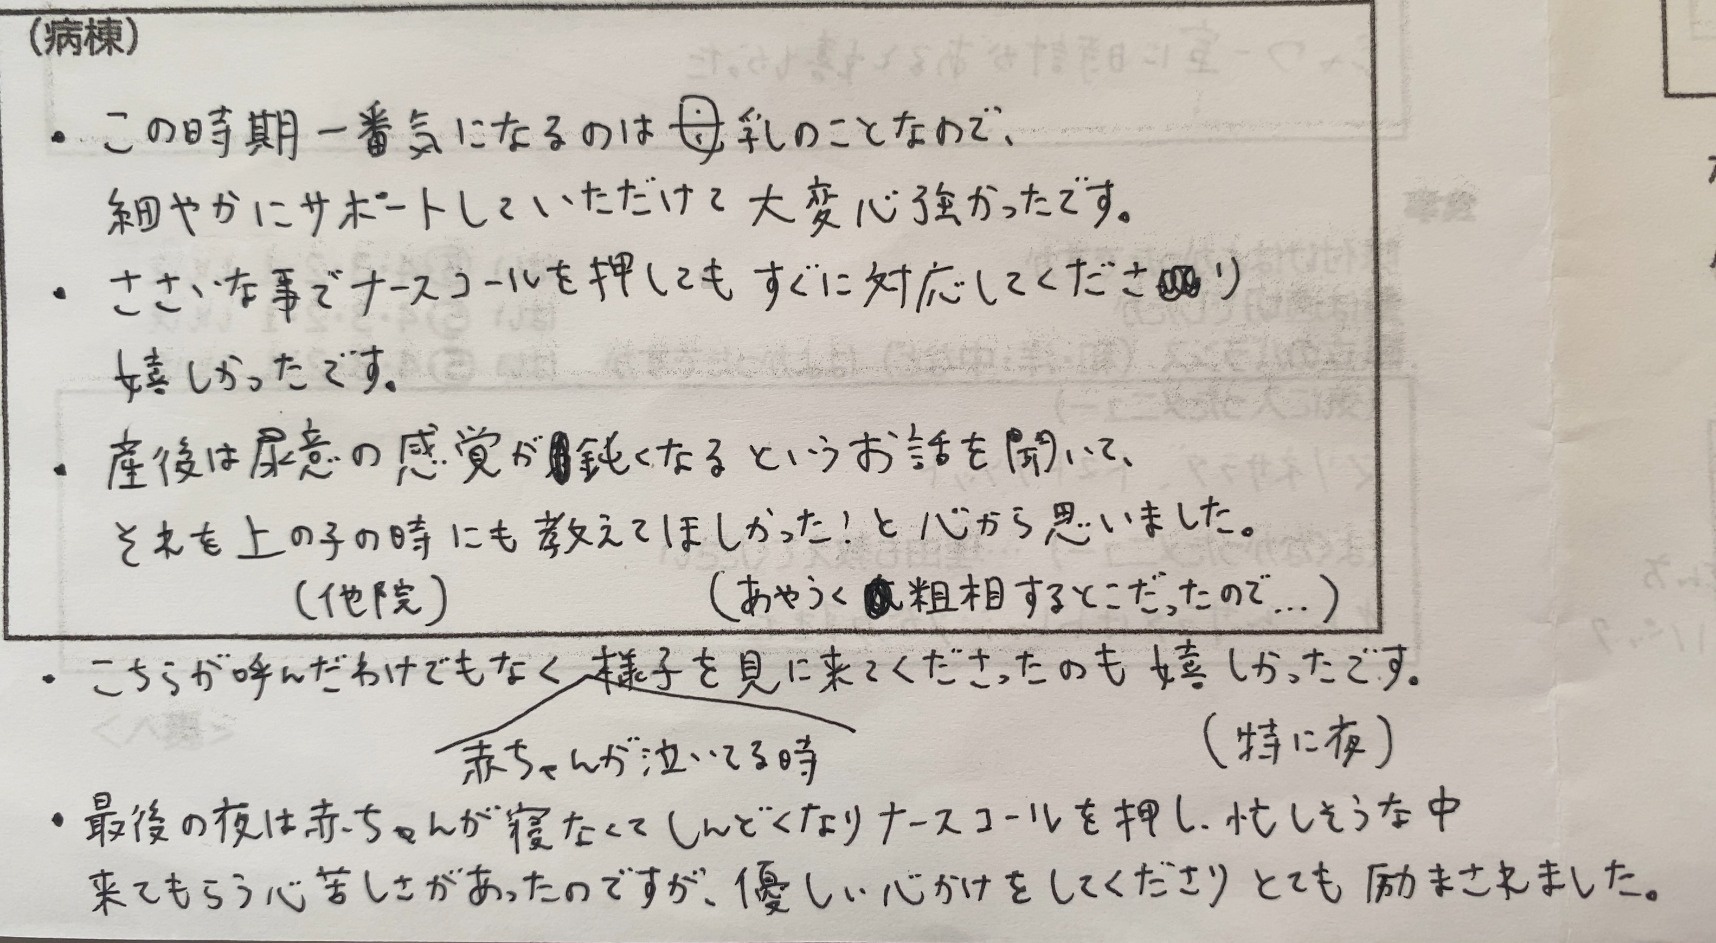 (病棟)
・この時期一番気になるのは母乳のことなので、
細やかにサポートしていただけて大変心強かったです。
・ささいな事でナースコールを押してもすぐに対応してくださり
嬉しかったです。
・産後は尿意の感覚が鈍くなるというお話を聞いて、
それを上の子の時にも教えてほしかった!と心から思いました。
(他院) (あやうく粗相するとこだったので…)
・こちらが呼んだわけでもなく様子を見に来てくださったのも嬉しかったです。
赤ちゃんが泣いてる時 (特に夜)
・最後の夜は赤ちゃんが寝なくてしんどくなりナースコールを押し、忙しそうな中
来てもらう心苦しさがあったのですが、優しい心かけをしてくださりとても励まされました。